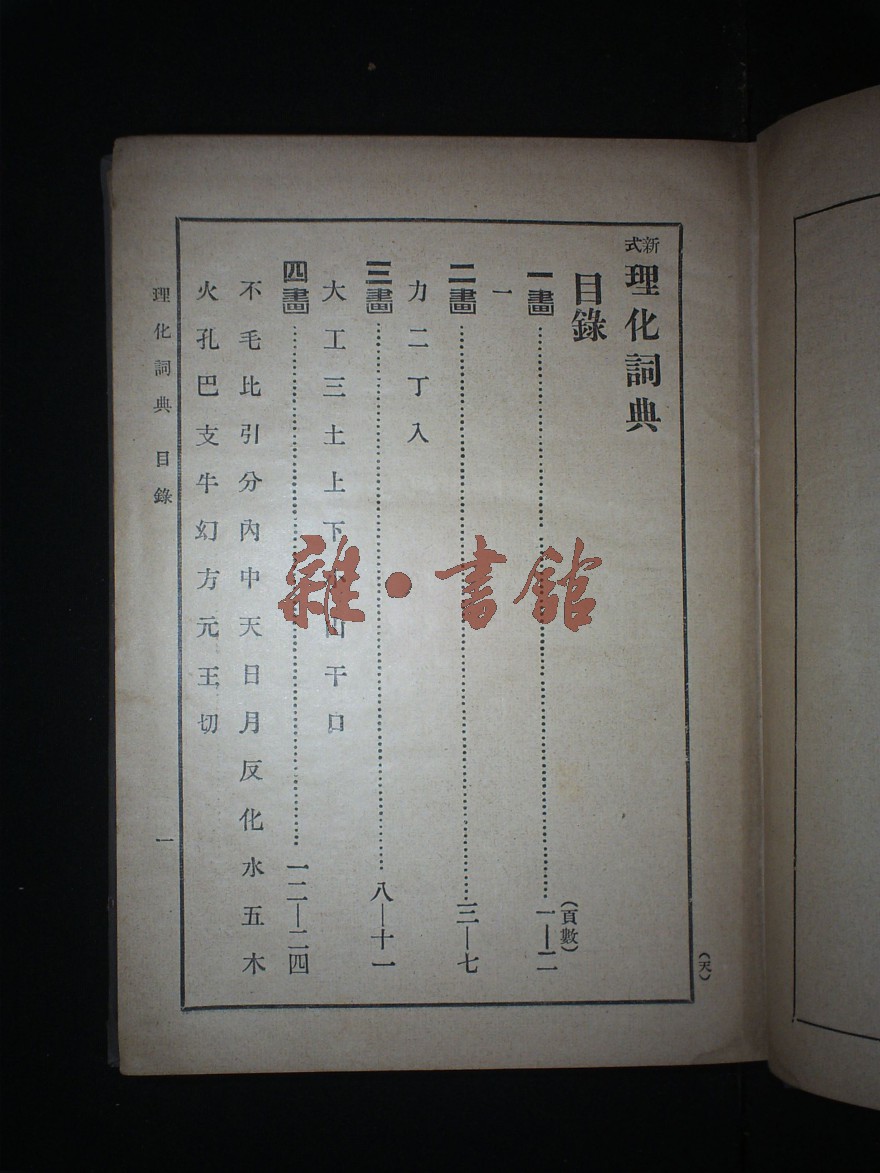 新式理化詞典
目錄
(頁數)
一畫……一—二
一
二畫……三—七
力二丁入
三畫……八—十一
大工三土上下小山干口
四畫……一二—二四
不毛比引分內中天日月反化水五木
火孔巴支牛幻方元王切
理化詞典 目錄 一
(天)
雜·書館